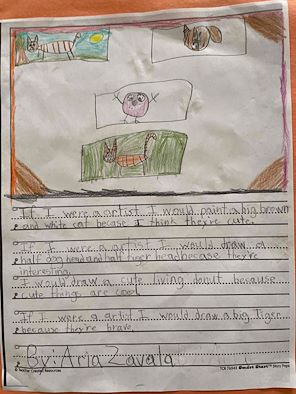 If I were a artist I would paint a big brown
and white cat becase I think theyre cute.
If I were a artist I would draw a
half dog head and half tiger head becase they're
interesting.
I would draw a cute living donut because
cute things are cool
If I were a artist I would draw a big Tiger
because they're brave
By: Aria Zavala
© Teacher Created Resources
TCR 76545 Smart Start™ Story Paper